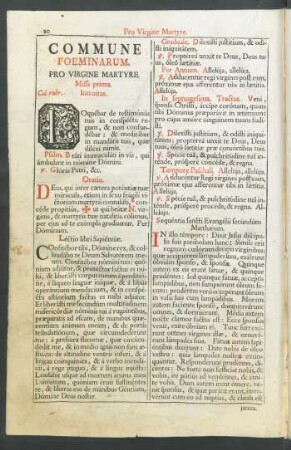 20 Pro Virgine Martyre.
COMMUNE
FOEMINARUM.
PRO VIRGINE MARTYRE.
Missa prima.
Introitus.
LOquebar de testimoniis
tuis in conspectu re-
gum, & non confun-
debar: & meditabar
in mandatis tuis, quæ
dilexi nimis.
Psalm. Beati immaculati in via, qui
ambulant in lege Domini.
℣. Gloria Patri, &c.
Oratio.
DEus, qui inter cætera potentiæ tuæ
miracula, etiam in sexu fragili vi-
ctoriam martyrii contulisti, con-
cede propitius, ut qui beatæ N. Virgi-
nis, & martyris tuæ natalitia colimus,
per ejus ad te exempla gradiamur. Per
Dominum.
Lectio libri Sapientiæ.
COnfitebor tibi, Domine rex, & col-
laudabo te Deum Salvatorem me-
um. Confitebor nomini tuo: quoniam
adjutor, & protector factus es mi-
hi, & liberasti corpus meum à perditio-
ne, à laqueo linguæ iniquæ, & à labiis
operantium mendacium, & in conspe-
ctu astantium factus es mihi adjutor.
Et liberasti me secundum multitudinem
misericordiæ nominis tui à rugientibus,
præparatis ad escam, de manibus quæ-
rentium animam meam, & de portis
tribulationum, quæ circumdederunt
me: à pressura flammæ, quæ circum-
dedit me, & in medio ignis non sum æ-
stuata: de altitudine ventris inferi, & à
lingua coinquinata, & à verbo menda-
cii, à rege iniquo, & à lingua injusta:
Laudabit usque ad mortem anima mea
Dominum, quoniam eruis sustinentes
te, & liberas eos de manibus Gentium,
Domine Deus noster.
Graduale. Dilexisti justitiam, & odi-
sti iniquitatem.
℣. Propterea unxit te Deus, Deus tu-
us, oleo lætitiæ.
Per Annum. Alleluja, alleluja.
℣. Adducentur regi virgines post eam,
proximæ ejus afferentur tibi in lætitia.
Alleluja.
In Septuagesima. Tractus. Veni,
sponsa Christi, accipe coronam, quam
tibi Dominus præparavit in æternum:
pro cujus amore sanguinem tuum fu-
disti.
℣. Dilexisti justitiam, & odisti iniqui-
tatem: propterea unxit te Deus, Deus
tuus, oleo lætitiæ præ consortibus tuis.
℣. Specie tua, & pulchritudine tua in-
tende, prospere procede, & regna.
Tempore Paschali. Alleluja, alleluja.
℣. Adducentur Regi virgines post eam,
proximæ ejus afferentur tibi in lætitia.
Alleluja.
℣. Specie tua, & pulchritudine tua in-
tende, prospere procede, & regna. Al-
leluja.
Sequentia sancti Evangelii secundùm
Matthæum.
IN illo tempore: Dixit Jesus discipu-
lis suis parabolam hanc: Simile erit
regnum cælorum decem virginibus: quæ
accipientes lampades suas exierunt
obviam sponso, & sponsæ. Quinque
autem ex eis erant fatuæ, & quinque
prudentes: sed quinque fatuæ, acceptis
lampadibus, non sumpserunt oleum
secum: prudentes verò acceperunt oleum
in vasis suis cum lampadibus. Moram
autem faciente sponso, dormitaverunt
omnes, & dormierunt. Media autem
nocte clamor factus est: Ecce sponsus
venit, exite obviam ei. Tunc surrexe-
runt omnes virgines illæ, & ornave-
runt lampades suas. Fatuæ autem sapi-
entibus dixerunt: Date nobis de oleo
vestro: quia lampades nostræ extin-
guuntur. Responderunt prudentes, di-
centes: Ne forte non sufficiat nobis, &
vobis, ite potius ad vendentes, & e-
mite vobis. Dum autem irent emere, ve-
nit sponsus, & quæ paratæ erant, in-
traverunt cum eo ad nuptias, & clausa est
janua.